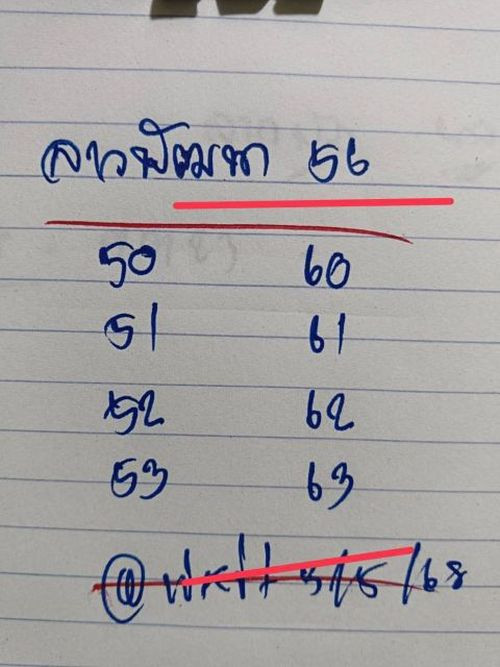 ลาวพัฒนา 56
50 60
51 61
52 62
53 63
@ 5/5/68